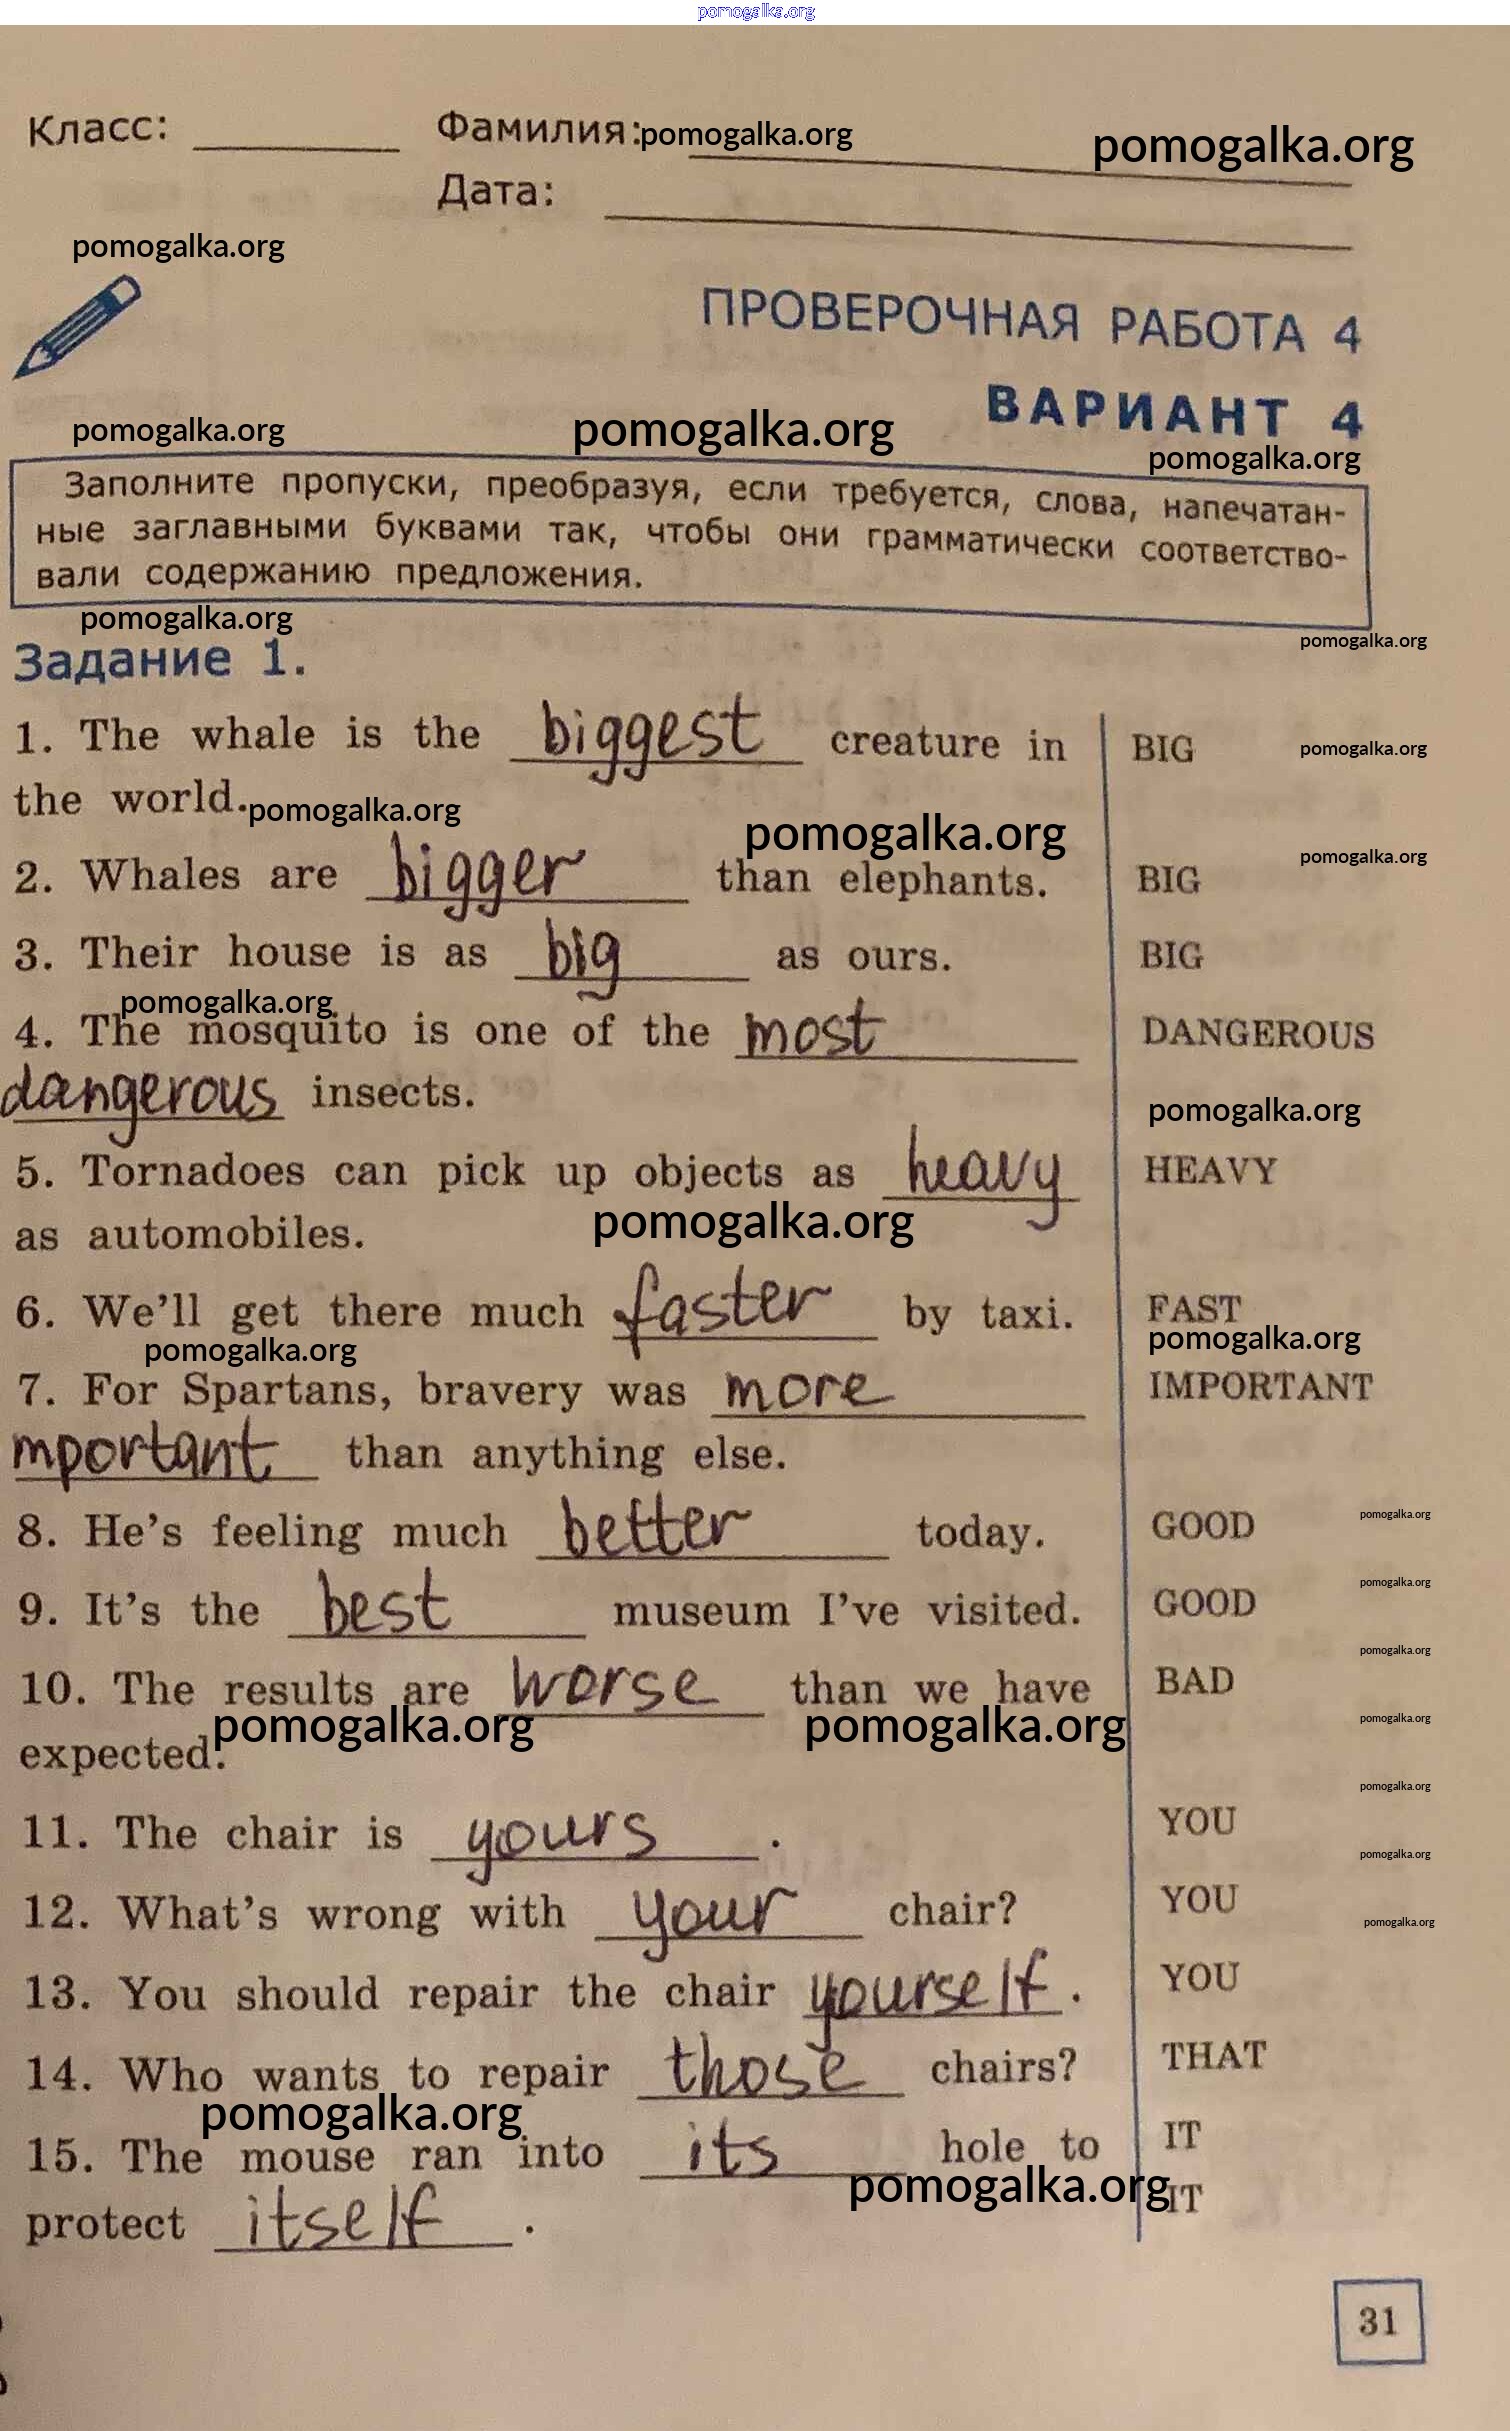 pomogalka.org
Класс: Фамилия: pomogalka.org pomogalka.org
Дата:
pomogalka.org
ПРОВЕРОЧНАЯ РАБОТА 4
ВАРИАНТ 4
pomogalka.org pomogalka.org pomogalka.org
Заполните пропуски, преобразуя, если требуется, слова, напечатан-
ные заглавными буквами так, чтобы они грамматически соответство-
вали содержанию предложения.
pomogalka.org
pomogalka.org
Задание 1.
1. The whale is the biggest creature in BIG pomogalka.org
the world. pomogalka.org pomogalka.org
pomogalka.org
2. Whales are bigger than elephants. BIG
3. Their house is as big as ours. BIG
pomogalka.org
4. The mosquito is one of the most DANGEROUS
dangerous insects. pomogalka.org
5. Tornadoes can pick up objects as heavy HEAVY
pomogalka.org
as automobiles.
6. We'll get there much faster by taxi. FAST
pomogalka.org pomogalka.org
7. For Spartans, bravery was more IMPORTANT
mportant than anything else.
8. He's feeling much better today. GOOD pomogalka.org
pomogalka.org
9. It's the best museum I've visited. GOOD
pomogalka.org
10. The results are worse than we have BAD
pomogalka.org pomogalka.org pomogalka.org
expected.
pomogalka.org
11. The chair is yours . YOU
pomogalka.org
12. What's wrong with your chair? YOU
pomogalka.org
13. You should repair the chair yourself . YOU
14. Who wants to repair those chairs? THAT
pomogalka.org
15. The mouse ran into its hole to IT
pomogalka.org IT
protect itself .
31